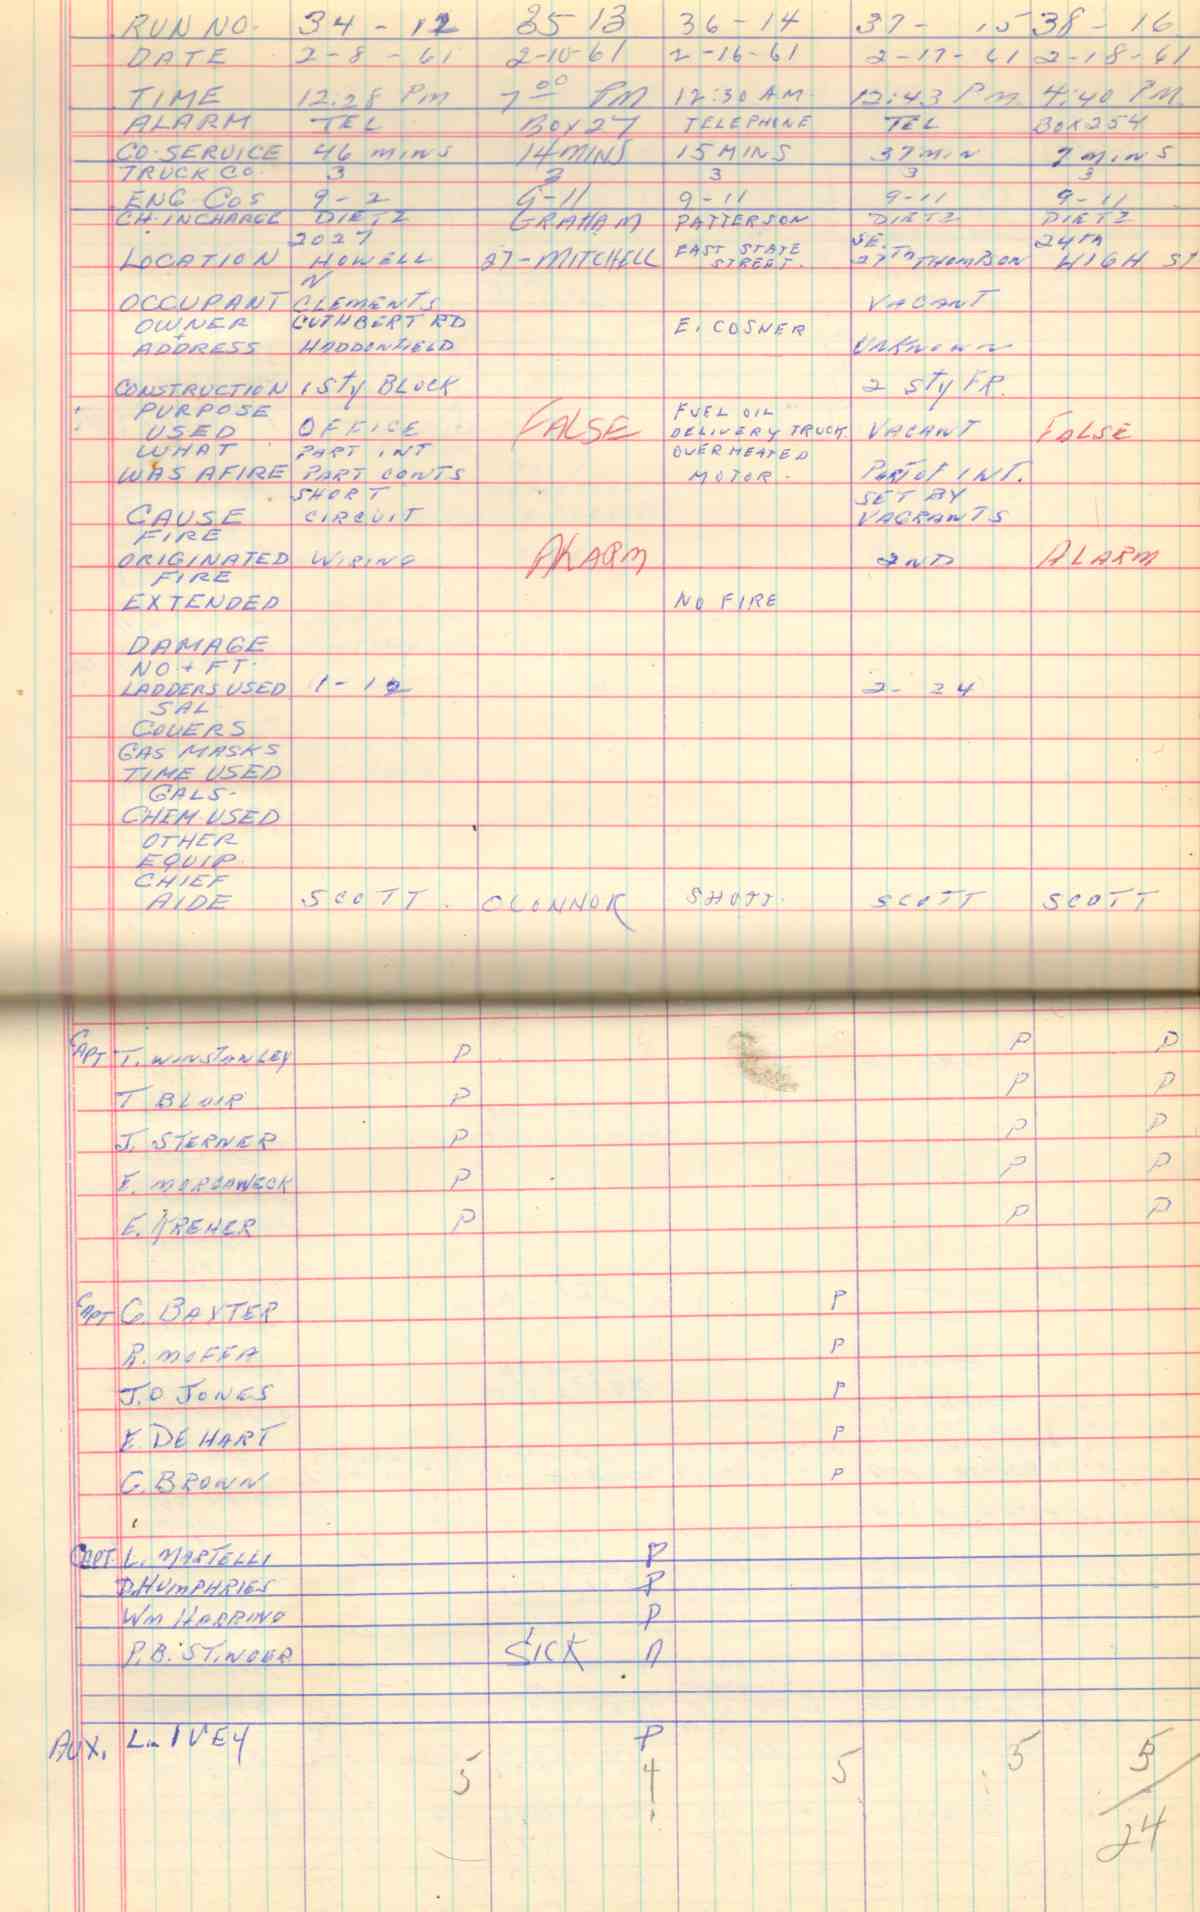 RUN NO. 34 - 12 35 13 36 - 14 37 - 15 38 - 16
DATE 2 - 8 - 61 2-10-61 2-16-61 2-17-61 2-18-61
TIME 12:28 Pm 7 00 PM 12:30 AM. 12:43 Pm 4:40 PM
ALARM TEL BOX 27 TELEPHONE TEL BOX 254
CO-SERVICE 46 mins 14 MINS 15 MINS 37 min 7 mins
TRUCK CO. 3 3 3 3 3
ENG COS 9 - 2 9-11 9-11 9-11 9-11
CH. INCHARGE DIETZ GRAHAM PATTERSON DIETZ DIETZ
2027 SE. 24TH
LOCATION HOWELL 27-MITCHELL EAST STATE STREET. 27TH THOMPSON HIGH ST
N
OCCUPANT CLEMENTS VACANT
OWNER CUTHBERT RD E. COSNER
+
ADDRESS HADDONFIELD UNKNOWN
CONSTRUCTION 1 Sty BLOCK 2 Sty FR.
PURPOSE FUEL OIL
USED OFFICE FALSE DELIVERY TRUCK VACANT FALSE
WHAT PART INT OVER HEATED
WAS AFIRE PART CONTS MOTOR. PART OF INT.
SHORT SET BY
CAUSE CIRCUIT VAGRANTS
FIRE
ORIGINATED WIRING ALARM 2ND ALARM
FIRE
EXTENDED NO FIRE
DAMAGE
NO + FT.
LADDERS USED 1-12 2- 24
SAL
COVERS
GAS MASKS
TIME USED
GALS.
CHEM. USED
OTHER
EQUIP.
CHIEF
AIDE SCOTT. OCONNOR SHOTT. SCOTT SCOTT
CAPT T. WINSTANLEY P P P
T BLAIR P P P
J. STERNER P P P
F. MORGAWECK P P P
E. KREHER P P P
CAPT G. BAXTER P
R. MOFFA P
J.O JONES P
E. DE HART P
G. BROWN P
CAPT. L. MARTELLI P
D. HUMPHRIES P
Wm HARRING P
P.B. STINGER SICK
AUX. L. IVEY P
5 4 5 5 5
24